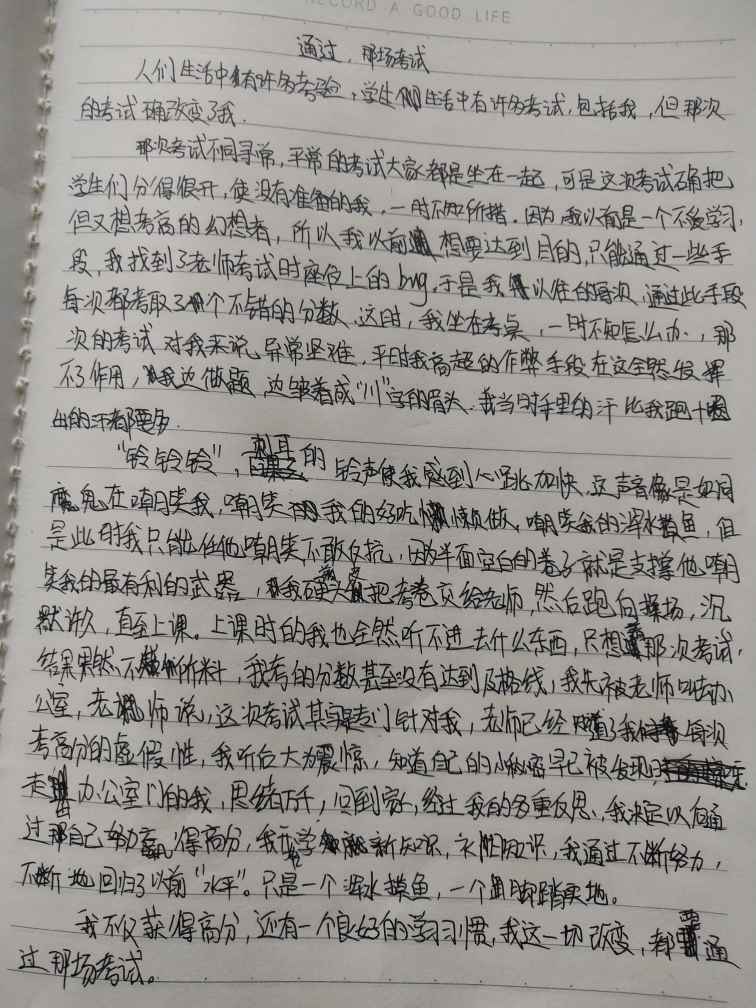 RECORD A GOOD LIFE
通过，那场考试
人们生活中有许多考验，学生们生活中有许多考试，包括我，但那次
的考试确改变了我.
那次考试不同寻常，平常的考试大家都是坐在一起，可是这次考试确把
学生们分得很开，使没有准备的我，一时不知所措．因为，我以前是一个不爱学习，
但又想考高的幻想者，所以我以前想要达到目的，只能通过一些手
段，我找到了老师考试时座位上的bug．于是我以往的每次，通过此手段
每次都考取了个不错的分数．这时，我坐在考桌，一时不知怎么办，那
次的考试对我来说，异常坚难，平时我高超的作弊手段在这全然发挥
不了作用，我边做题，边皱着成“川”字的眉头．我当时手里的汗比我跑十圈
出的汗都要多．
“铃铃铃”，刺耳的铃声使我感到心跳加快，这声音像是如同
魔鬼在嘲笑我，嘲笑我的好吃懒做，嘲笑我的浑水摸鱼，但
是此时我只能任他嘲笑不敢反抗，因为半面空白的卷子就是支撑他嘲
笑我的最有利的武器，我硬着头皮把考卷交给老师，然后跑向操场，沉
默许久，直至上课。上课时的我也全然听不进去什么东西，只想着那次考试，
结果果然不所料，我考的分数甚至没有达到及格线，我先被老师叫去办
公室，老师说，这次考试其实是专门针对我，老师已经知道了我每次
考高分的虚假性，我听后大为震惊，知道自己的小秘密早已被发现，
走出办公室门的我，思绪万千，回到家，经过我的多重反思，我决定以后通
过自己努力赢得高分，我学新知识，补旧知识，我通过不断努力，
不断地回归了以前“水平”。只是一个浑水摸鱼，一个脚踏实地。
我不仅获得高分，还有一个良好的学习习惯，我这一切改变，都要通
过那场考试。